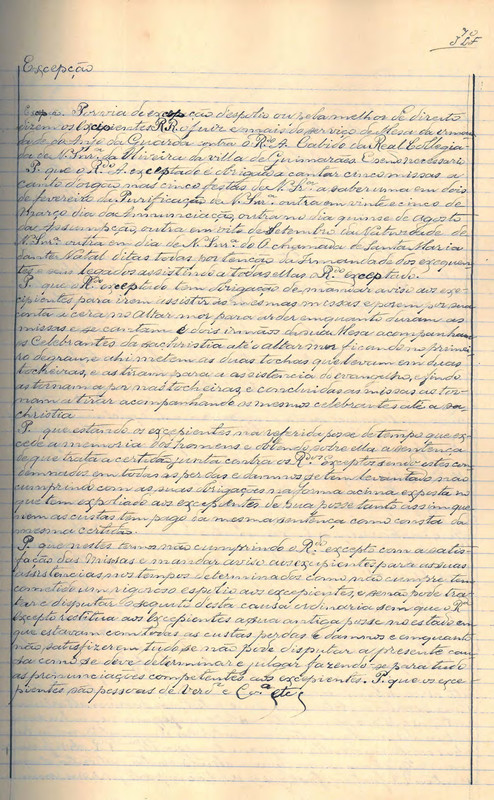 Excepção
Por via de excepção d'espolio ou pela melhor de direito
dizem os Excipientes RR. o Juiz e mais do serviço de Mesa da irman-
dade do Anjo da Guarda contra o R.do A. Cabido da Real Collegia-
da de N. Snr.a da Oliveira da villa de Guimarães E sendo necessario
P. que o R.do A. exceptado é obrigado a cantar cinco missas a
canto d'orgão nas cinco festas da N. Sr.a a saber uma em dois
de fevereiro da Purificação de N. Snr.a outra em vinte e cinco de
Março dia da Annunciação, outra no dia quinse de Agosto
da Assumpção, outra em oito de Setembro da Natividade de
N. Snr.a outra em dia de N. Snr.a do Ó chamada de Santa Maria
ante Natal ditas todas por tenção da Irmandade dos excipien-
tes e seus legados assistindo a todas ellas o R.do exceptado.
P. que o R.do exceptado tem obrigação de mandar aviso aos exc-
ipientes para irem assistir às mesmas missas e poem por sua
conta a cera no Altar mor para arder emquanto duram as
missas e se cantam e dois irmãos da sua Mesa acompanham
os Celebrantes da sachristia até o altar mor ficando no primei-
ro degrau, e ahi metem as duas tochas que levam em duas
tocheiras, e as tiram para a assistencia do evangelho, e findo
as tornam a por nas tocheiras e concluidas as missas as tor-
nam a tirar acompanhando os mesmos celebrantes até a sa-
christia
P. que estando os excipientes na referida posse de tempo que ex-
cede a memoria dos homens e obtendo sobre ella a sentença
de que trata a certidão junta contra os R.dos exceptos sendo estes con-
demnados em todas as perdas e damnos se tem levantado não
cumprindo com as suas obrigações na forma acima exposta no
que tem expoliado aos excipientes da sua posse tanto assim que
nem as custas tem pago da mesma sentença como consta da
mesma certidão.
P. que nestes termos não cumprindo o R.do excepto com a satis-
fação das Missas e mandar aviso aos excipientes para as suas
assistencias nos tempos determinados como não cumpre tem
comettido um rigoroso espolio aos excipientes, e se não pode tra-
tar e disputar o sequito desta causa ordinaria sem que o R.do
Excepto restitua aos Excipientes a sua antiga posse no estado em
que estavam com todas as custas perdas e damnos e emquanto
não satisfizerem tudo se não pode disputar a presente cau-
sa como se deve determinar e julgar fazendo-se para tudo
as pronunciações competentes aos excipientes. P. que os exce-
pientes são pessoas de verd.e e